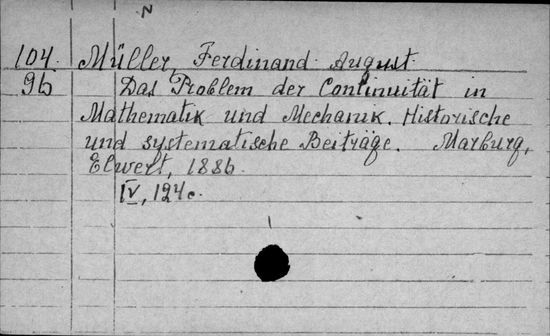 N
104. Müller, Ferdinand August
96 Das Problem der Continuität in
Mathematik und Mechanik. Historische
und systematische Beiträge. Marburg,
Elwert, 1886.
IV, 124 c.